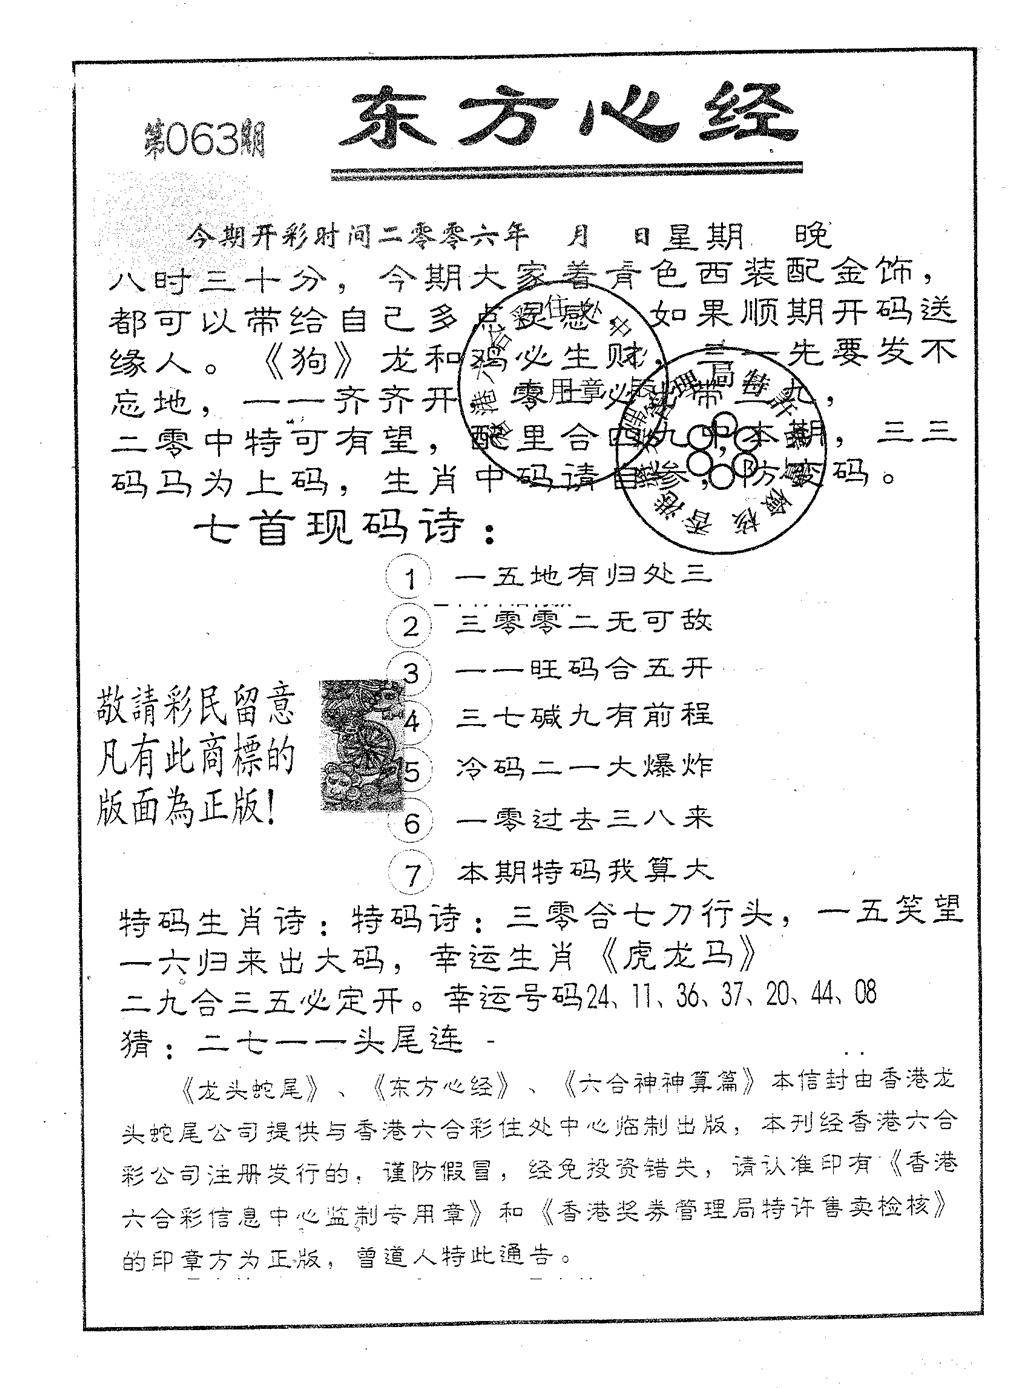 东方心经
第063期
今期开彩时间二零零六年 月 日星期 晚
八时三十分，今期大家着青色西装配金饰，
都可以带给自己多点灵感，如果顺期开码送
缘人。《狗》龙和鸡必生财，三一先要发不
忘地，一一齐齐开，零二必出带三九，
二零中特可有望，配里合四九中本期，三三
码马为上码，生肖中码请自参，防变码。
七首现码诗：
1 一五地有归处三
2 三零零二无可敌
3 一一旺码合五开
4 三七碱九有前程
5 冷码二一大爆炸
6 一零过去三八来
7 本期特码我算大
敬請彩民留意
凡有此商標的
版面為正版！
特码生肖诗：特码诗：三零合七刀行头，一五笑望
一六归来出大码，幸运生肖《虎龙马》
二九合三五必定开。幸运号码24、11、36、37、20、44、08
猜：二七一一头尾连
《龙头蛇尾》、《东方心经》、《六合神神算篇》本信封由香港龙
头蛇尾公司提供与香港六合彩住处中心临制出版，本刊经香港六合
彩公司注册发行的，谨防假冒，经免投资错失，请认准印有《香港
六合彩信息中心监制专用章》和《香港奖券管理局特许售卖检核》
的印章方为正版，曾道人特此通告。